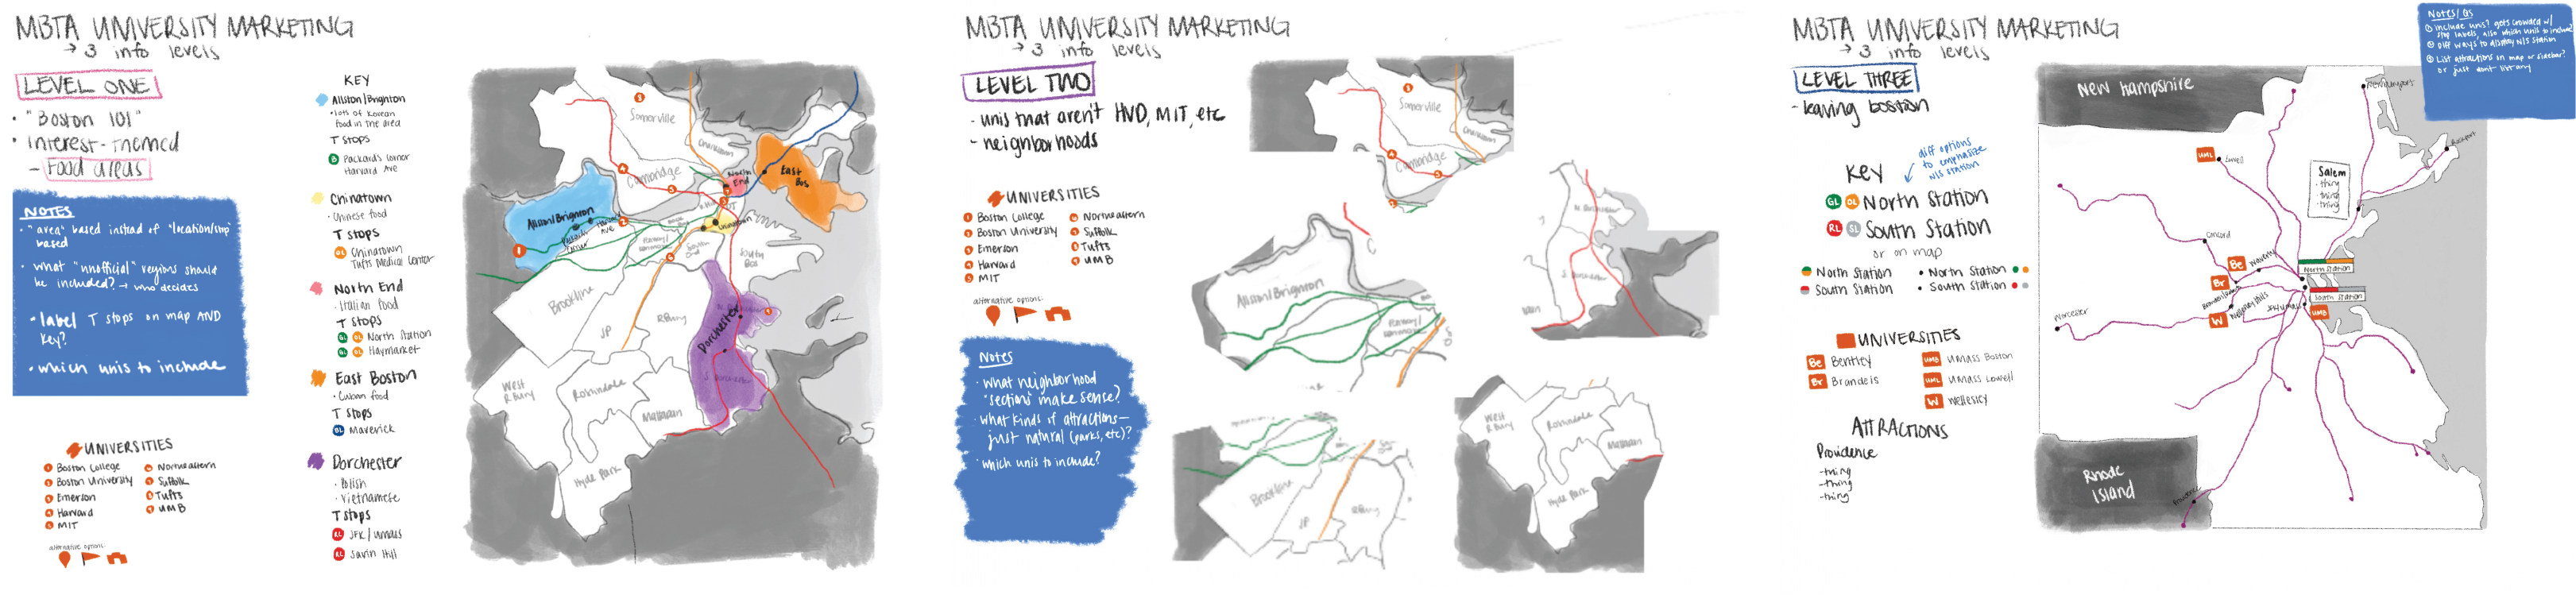 MBTA UNIVERSITY MARKETING
→ 3 info levels
LEVEL ONE
• "Boston 101"
• Interest-themed
- Food areas
NOTES
• "area" based instead of "location/stop"
based
• what "unofficial" regions should
be included? → who decides
• label T stops on map AND
key?
• which unis to include
UNIVERSITIES
Boston College
Boston University
Emerson
Harvard
MIT
Northeastern
Suffolk
Tufts
UMB
alternative options:
KEY
Allston/Brighton
• lots of Korean
food in the area
T stops
B Packard's Corner
Harvard Ave
Chinatown
• Chinese food
T stops
OL Chinatown
Tufts Medical Center
North End
• Italian food
T stops
GL OL North Station
GL OL Haymarket
East Boston
• Cuban food
T stops
BL Maverick
Dorchester
• Polish
• Vietnamese
T stops
RL JFK / UMass
RL Savin Hill
Somerville
Charlestown
Cambridge
North
End
East
Bos
Allston/Brighton
Packards
Corner
Harvard
Ave
Chinatown
South
End
South
Bos
Brookline
JP
RBury
Dorchester
S. Dorchester
West
R Bury
Roslindale
Mattapan
Hyde Park
MBTA UNIVERSITY MARKETING
→ 3 info levels
LEVEL TWO
- unis that aren't HVD, MIT, etc
- neighborhoods
UNIVERSITIES
Boston College
Boston University
Emerson
Harvard
MIT
Northeastern
Suffolk
Tufts
UMB
alternative options:
Notes
• what neighborhood
"sections" make sense?
• What kinds of attractions—
just natural (parks, etc)?
• which unis to include?
Somerville
Charlestown
Cambridge
N. Dorchester
S. Dorchester
Allston/Brighton
Brookline
JP
RBury
West
R Bury
Roslindale
Mattapan
Hyde Park
MBTA UNIVERSITY MARKETING
→ 3 info levels
LEVEL THREE
- leaving boston
diff options
to emphasize
N/S station
Key
GL OL North Station
RL SL South Station
or on map
North Station
South Station
• North Station
• South Station
UNIVERSITIES
Be Bentley
Br Brandeis
UMB UMass Boston
UML UMass Lowell
W Wellesley
ATTRACTIONS
Providence
-thing
-thing
-thing
Notes/Qs
① include unis? gets crowded w/
stop labels, also which unis to include
② diff ways to display N/S station
③ List attractions on map or sidebar?
or just don't literally
New Hampshire
Newburyport
Rockport
UML
Lowell
Salem
- thing
- thing
- thing
Concord
Be
Waverly
Br
North Station
South Station
W
Wellesley Hills
JFK/UMass
UMB
Worcester
Rhode
Island
Providence